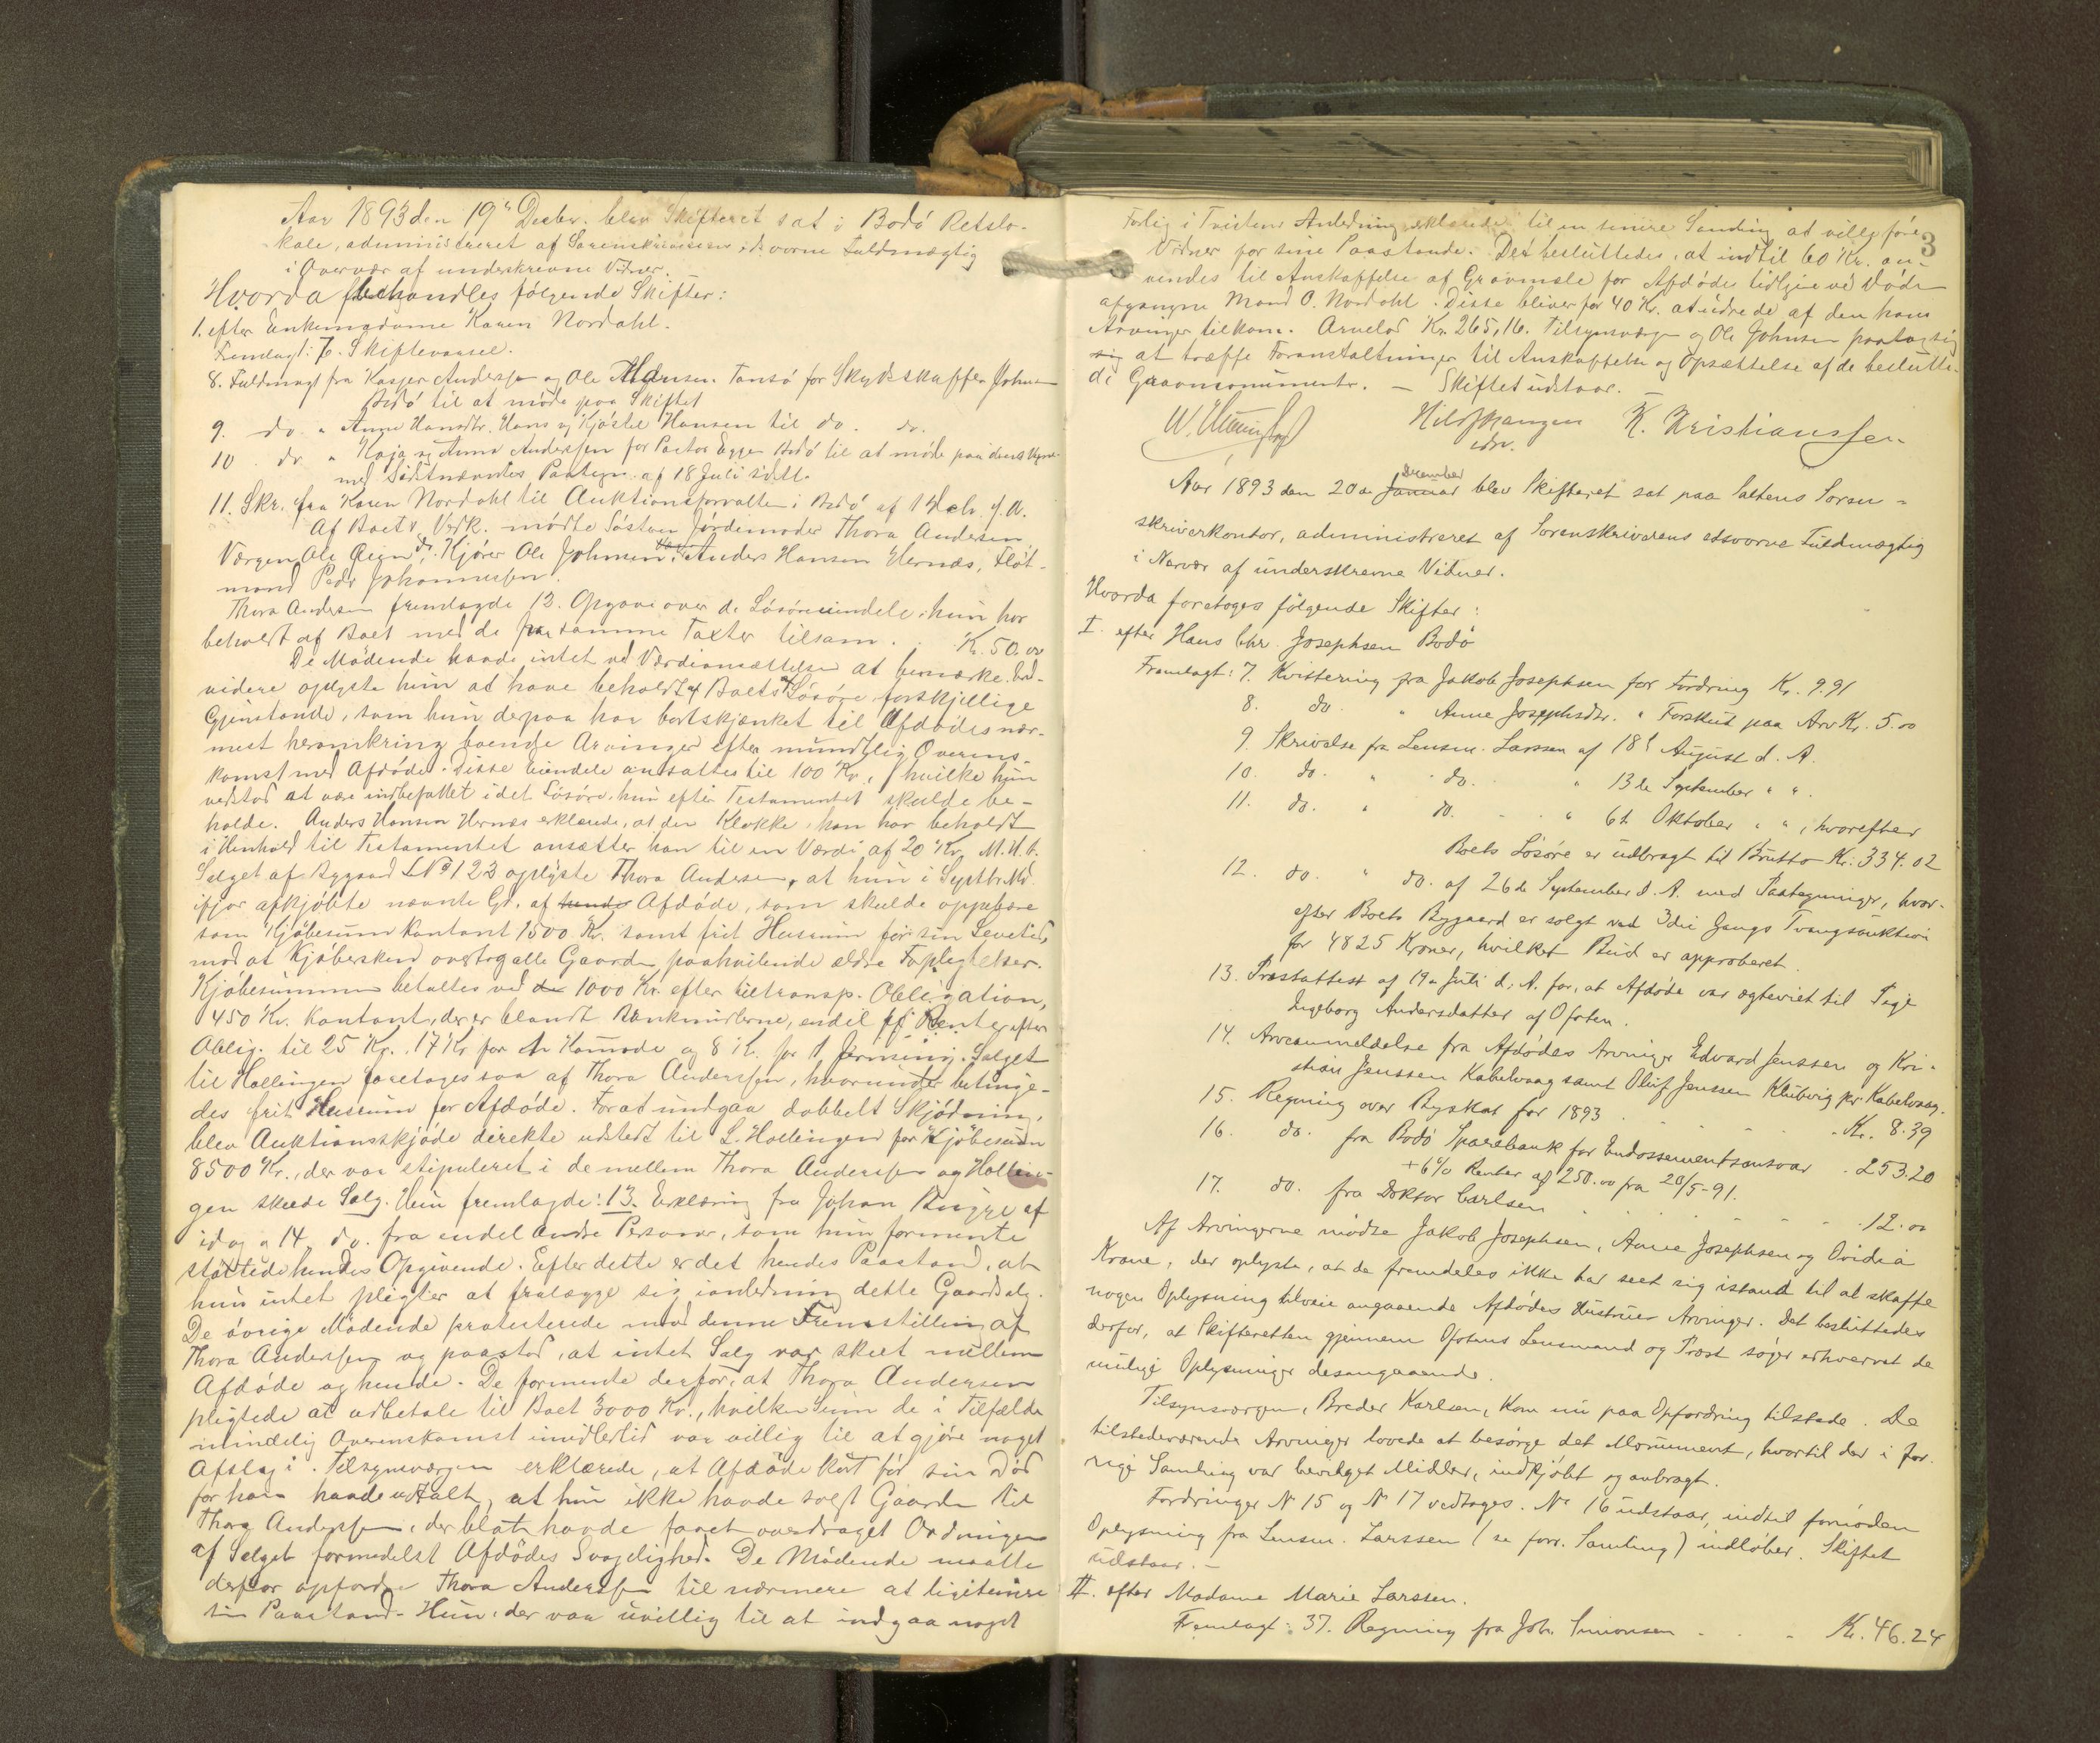 Aar 1893 den 19de Decbr. blev Skifteret sat i Bodö Retslo-
kale, administreret af Sorenskriverens edsvorne Fuldmægtig
i Overvær af underskrevne Vidner.
Hvorda behandles følgende Skifter:
1. efter Enkemadame Karen Nordahl.
Fremlagt: 7. Skiftevarsel.
8. Fuldmagt fra Kasper Andersen og Ole Hansen Tansö for Skydsskaffer Johnsen
Bodö til at möde paa Skiftet
9. do. " Anne Hansdtr. Hans og Kjöstel Hansen til do. do.
10 do. " Kaja og Anna Anderssen for Pastor Egge Bodö til at möde paa deres Vegne
med Sidstnævntes Paategn. af 18 Juli sidstl.
11. Skr. fra Karen Nordahl til Auktionsforvalter i Bodö af f. A.
Af Boets Vedk. mödte Söstren Jordemoder Thora Andersen
Værgen Ole Kjörer Ole Johnsen, Anders Hansen Hernæs, Flöt-
mand Peder Johannessen.
Thora Andersen fremlagde 12. Opgave over de Lösöreiendele, hun har
beholdt af Boet med de paa samme Taxter tilsam. Kr. 50.00
De Mödende havde intet ved Værdiansættelsen at bemærke. End-
videre oplyste hun at have beholdt af Boets Lösöre forskjellige
Gjenstande, som hun derpaa har bortskjænket til Afdödes nær-
mest heromkring boende Arvinger efter mundtlig Overens-
komst med Afdöde. Disse Eiendele ansattes til 100 Kr., hvilke hun
vedstod at være indbefattet i det Lösöre, hun efter Testamentet skulde be-
holde. Anders Hansen Hernæs erklærede, at den Klokke, han har beholdt
i Henhold til Testamentet ansætter han til en Værdi af 20 Kr. M.H.t.
Salget af Bygaard LNo 123 oplyste Thora Andersen, at hun i Septbr. Md.
ifjor afkjöbte nævnte Gd. af hendes Afdöde, som skulde oppebære
som Kjöbesum kontant 1500 Kr. samt frit Husrum for sin Levetid,
mod at Kjöbersken overtog alle Gaarden paahvilende ældre Forpligtelser.
Kjöbesummen betaltes ved de 1000 Kr. efter tiltransp. Obligation,
450 Kr. kontant, der er blandt Bankmidlerne, endel Renter efter
Oblig. til 25 Kr. 17 Kr for en Komode og 8 Kr. for 1 Salget
til Hollingen foretoges saa af Thora Anderssen, hvorunder betinge-
des frit Husrum for Afdöde. For at undgaa dobbelt Skjödning,
blev Auktionsskjöde direkte udstedt til L. Hollingen for Kjöbesum
8500 Kr., der var stipuleret i de mellem Thora Anderssen og Hollin-
gen skeede Salg. Hun fremlagde: 13. Erklæring fra Johan Brygge af
idag og 14, do. fra endel andre Personer, som hun formente
støttede hendes Opgivende. Efter dette er det hendes Paastand, at
hun intet pligter at fralægge sig i anledning dette Gaardsalg.
De övrige Mödende protesterede mod denne Fremstilling af
Thora Anderssen og paastod, at intet Salg var skeet mellem
Afdöde og hende. De formente derfor, at Thora Andersen
pligtede at udbetale til Boet 3000 Kr., hvilken Sum de i Tilfælde
mindelig Overenskomst imidlertid var villig til at gjöre noget
Afslag i. Tilsynsværgen erklærede, at Afdöde kort för sin Död
for ham havde udtalt, at hun ikke havde solgt Gaarden til
Thora Anderssen, der blot havde faaet overdraget Ordningen
af Salget formedelst Afdödes Svagelighed. De Mödende maatte
derfor opfordre Thora Anderssen til nærmere at ligitimere
sin Paastand. Hun, der var uvillig til at indgaa noget
3
Forlig i Tvistens Anledning erklærede til en senere Samling at ville före
Vidner for sine Paastande. Det besluttedes, at indtil 60 Kr. an-
vendes til Anskaffelse af Gravmæle for Afdödes tidligere ved Döden
afgangne Mand O. Nordahl. Disse bliver for 40 Kr. at udrede af den hans
Arvinger tilkom. Arvelod Kr. 265,16. Tilsynsværgen og Ole Johnsen paatog sig
sig at træffe Foranstaltninger til Anskaffelse og Opsættelse af de beslutte-
de Gravmonumenter. — Skiftet udstaar.
K. Kristianssen
December
Aar 1893 den 20de Januar blev Skifteret sat paa Saltens Soren-
skriverkontor, administreret af Sorenskriverens edsvorne Fuldmægtig
i Nærvær af underskrevne Vidner.
Hvorda foretoges fölgende Skifter:
I. efter Hans Chr. Josephsen Bodö
Fremlagt: 7. Kvittering fra Jakob Josephsen for Fordring Kr. 9.91
8. do " Anne Josephsdtr. " Forskud paa Arv Kr. 5.00
9. Skrivelse fra Lensm. Larssen af 18de August d. A.
10. do. " do. " 13de September " ".
11. do. " do. " 6te Oktober " ", hvorefter
Boets Lösöre er udbragt til Brutto Kr. 334.02
12. do. " do. af 26de September d. A. med Paategninger, hvor-
efter Boets Bygaard er solgt ved 3die Gangs Tvangsauktion
for 4825 Kroner, hvilket Bud er approberet.
13. Præstattest af 19de Juli d. A. for, at Afdöde var ægteviet til Pige
Ingeborg Andersdatter af Ofoten.
14. Arveanmeldelse fra Afdödes Arvinger Edvard Jenssen og Kri-
stian Jenssen Kabelvaag samt Oluf Jenssen Klubvig pr. Kabelvaag.
15. Regning over Byskat for 1893 . . . . . Kr. 8.39
16. do. fra Bodö Sparebank for Endossementsansvar . 253.20
+ 6% Renter af 250.00 fra 20/5-91.
17. do. fra Doktor Carlsen . . . . . . 12.00
Af Arvingerne mödte Jakob Josephsen, Anne Josephsen og Ovidia
Krane, der oplyste, at de fremdeles ikke har seet sig istand til at skaffe
nogen Oplysning tilveie angaaende Afdödes Hustrues Arvinger. Det besluttedes
derfor, at Skifteretten gjennem Ofotens Lensmand og Præst söger erhvervet de
mulige Oplysninger desangaaende.
Tilsynsværgen, Breder Karlsen, kom nu paa Opfordring tilstede. De
tilstedeværende Arvinger lovede at besörge det Monument, hvortil der i for-
rige Samling var bevilget Midler, indkjöbt og anbragt.
Fordringer No 15 og No 17 vedtoges. No 16 udstaar, indtil fornöden
Oplysning fra Lensm. Larssen (se forr. Samling) indlöber. Skiftet
udstaar. -
II. efter Madame Marie Larssen.
Fremlagt: 37. Regning fra Joh. Simonsen - . . - Kr. 46.24